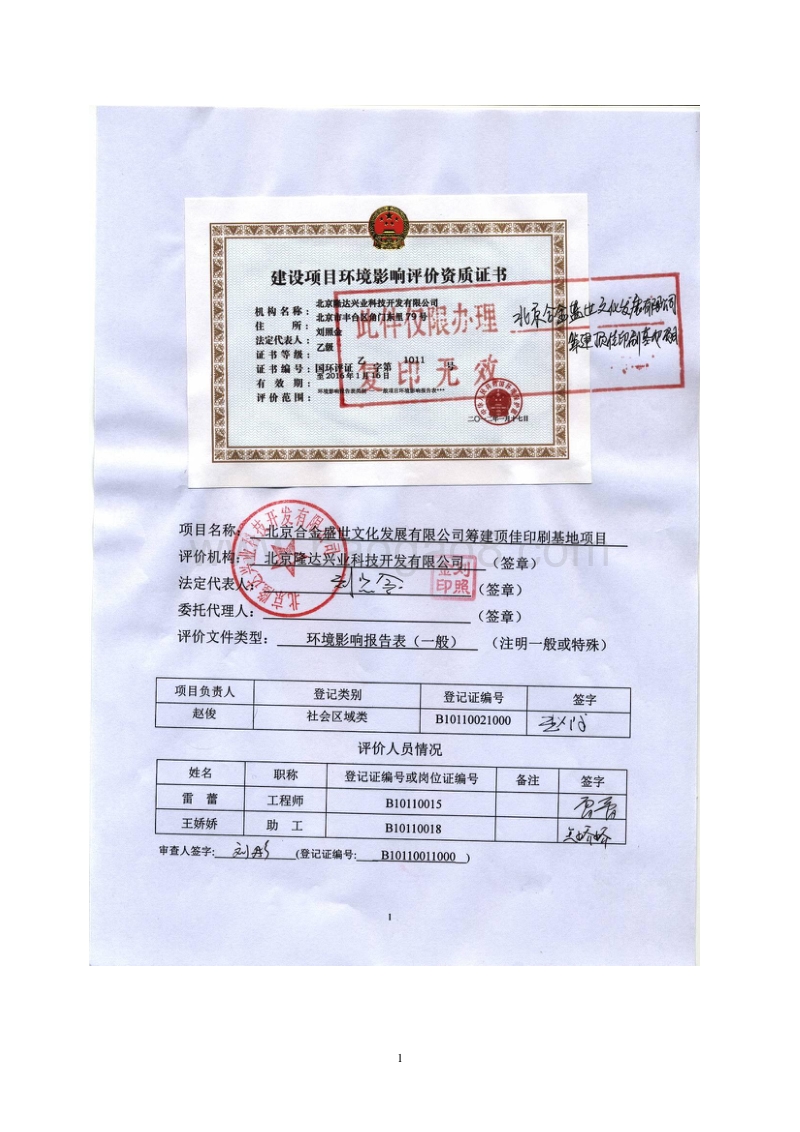 建设项目环境影响评价资质证书
机构名称：北京隆达兴业科技开发有限公司
住所：北京市丰台区角门东里79号
法定代表人：刘照金
证书等级：乙级
证书编号：国环评证 乙 字第 1011 号
有效期：至2016年1月16日
评价范围：
此件仅限办理 北京合金盛世文化发展有限公司
筹建顶佳印刷基地项目
复印无效
项目名称：北京合金盛世文化发展有限公司筹建顶佳印刷基地项目
评价机构：北京隆达兴业科技开发有限公司（签章）
法定代表人：（签章）
刘照金印
北京隆达兴业科技开发有限公司
委托代理人：（签章）
评价文件类型：环境影响报告表（一般）（注明一般或特殊）
项目负责人 登记类别 登记证编号 签字
赵俊 社会区域类 B10110021000 赵俊
评价人员情况
姓名 职称 登记证编号或岗位证编号 备注 签字
雷蕾 工程师 B10110015 雷蕾
王娇娇 助工 B10110018 王娇娇
审查人签字：刘彤（登记证编号：B10110011000）
1
1